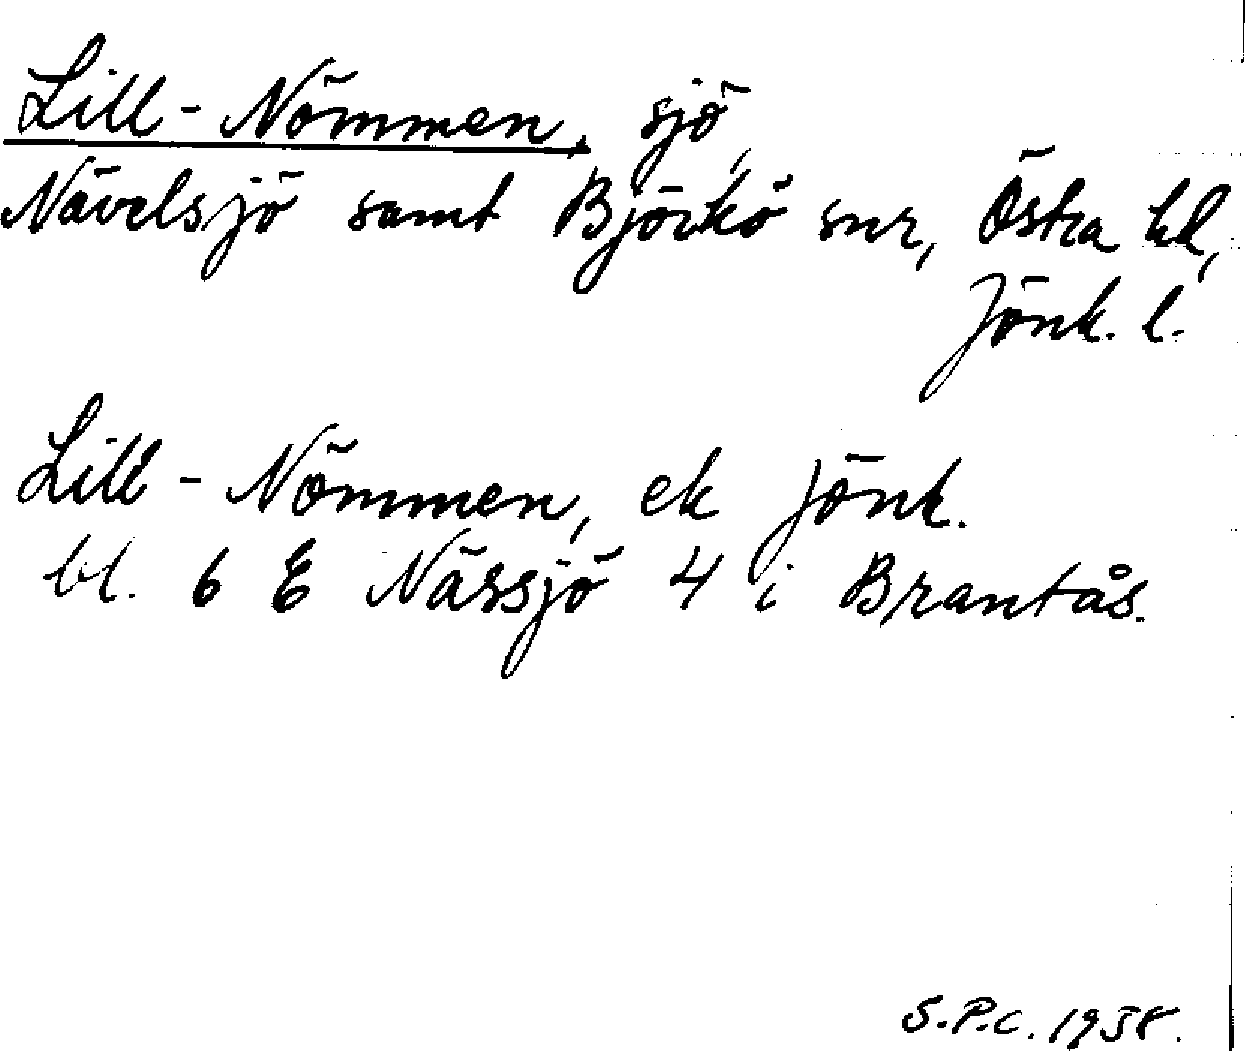 Lill-Nömmen, sjö,
Nävelsjö samt Björkö snr, Östra hd,
Jönk. l.
Lill-Nömmen, ek Jönk.
bl. 6 E Nässjö 4 i Brantås.
S.P.C. 1958.